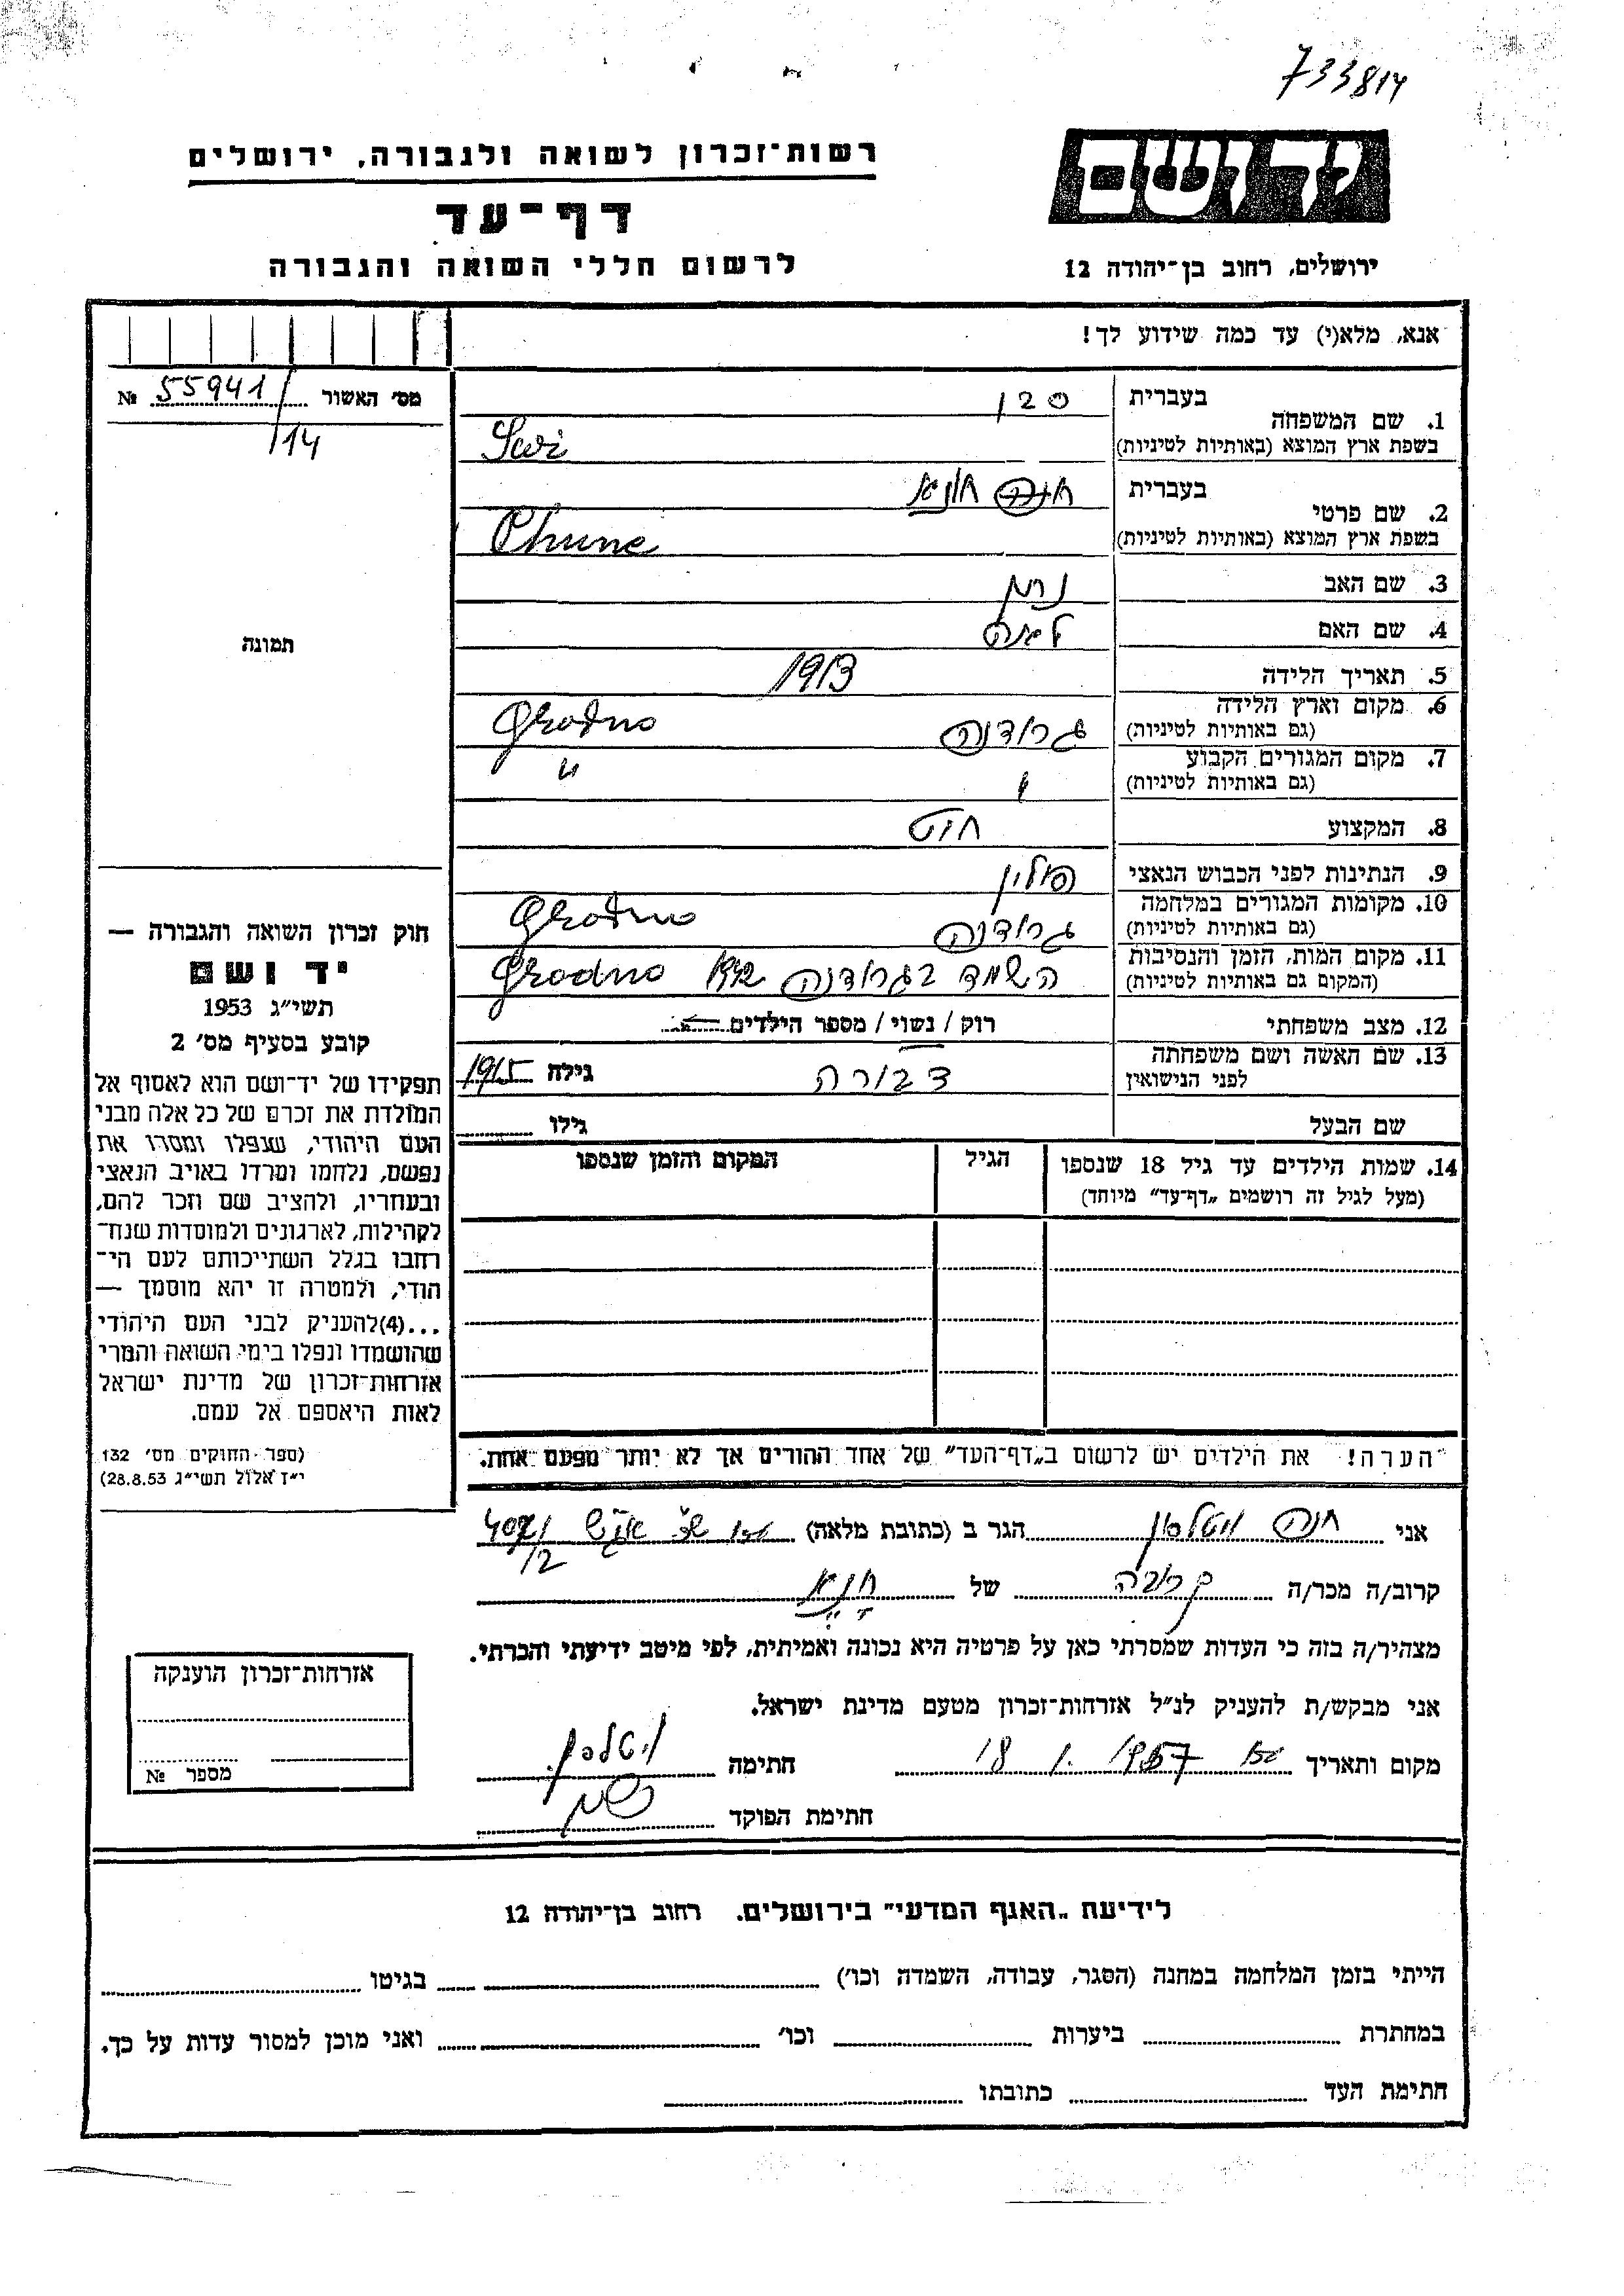 733814
יד ושם
רשות־זכרון לשואה ולגבורה, ירושלים
דף־עד
לרשום חללי השואה והגבורה
ירושלים, רחוב בן־יהודה 12
אנא, מלא(י) עד כמה שידוע לך!
מס' האשור 55941 №
/14
תמונה
1. שם המשפחה
בעברית
בשפת ארץ המוצא (באותיות לטיניות)
2. שם פרטי
בעברית חונא
בשפת ארץ המוצא (באותיות לטיניות) Chune
3. שם האב
4. שם האם לאה
5. תאריך הלידה 1913
6. מקום וארץ הלידה
(גם באותיות לטיניות) גרודנה Grodno
7. מקום המגורים הקבוע
(גם באותיות לטיניות) " "
8. המקצוע חיט
9. הנתינות לפני הכבוש הנאצי פולין
10. מקומות המגורים במלחמה
(גם באותיות לטיניות) גרודנה Grodno
11. מקום המות, הזמן והנסיבות
(המקום גם באותיות לטיניות) השמד בגרודנה Grodno
12. מצב משפחתי רוק / נשוי / מספר הילדים
13. שם האשה ושם משפחתה
לפני הנישואין דבורה גילה 1915
שם הבעל גילו
14. שמות הילדים עד גיל 18 שנספו
(מעל לגיל זה רושמים „דף־עד" מיוחד)
הגיל
המקום והזמן שנספו
הערה! את הילדים יש לרשום ב„דף־העד" של אחד ההורים אך לא יותר מפעם אחת.
חוק זכרון השואה והגבורה —
יד ושם
תשי"ג 1953
קובע בסעיף מס' 2
תפקידו של יד־ושם הוא לאסוף אל
המולדת את זכרם של כל אלה מבני
העם היהודי, שנפלו ומסרו את
נפשם, נלחמו ומרדו באויב הנאצי
ובעוזריו, ולהציב שם וזכר להם,
לקהילות, לארגונים ולמוסדות שנח־
רחבו בגלל השתייכותם לעם הי־
הודי, ולמטרה זו יהא מוסמך —
...(4)להעניק לבני העם היהודי
שהושמדו ונפלו בימי השואה והמרי
אזרחות־זכרון של מדינת ישראל
לאות היאספם אל עמם.
(ספר החוקים מס' 132
י"ז אלול תשי"ג 28.8.53)
אני חנה הגר ב (כתובת מלאה)
קרוב/ה מכר/ה קרובה של חונא
מצהיר/ה בזה כי העדות שמסרתי כאן על פרטיה היא נכונה ואמיתית, לפי מיטב ידיעתי והכרתי.
אני מבקש/ת להעניק לנ"ל אזרחות־זכרון מטעם מדינת ישראל.
מקום ותאריך 18 1. 1957 חתימה
חתימת הפוקד
אזרחות־זכרון הוענקה
מספר №
לידיעת „האגף המדעי" בירושלים. רחוב בן־יהודה 12
הייתי בזמן המלחמה במחנה (הסגר, עבודה, השמדה וכו') בגיטו
במחתרת ביערות וכו' ואני מוכן למסור עדות על כך.
חתימת העד כתובתו